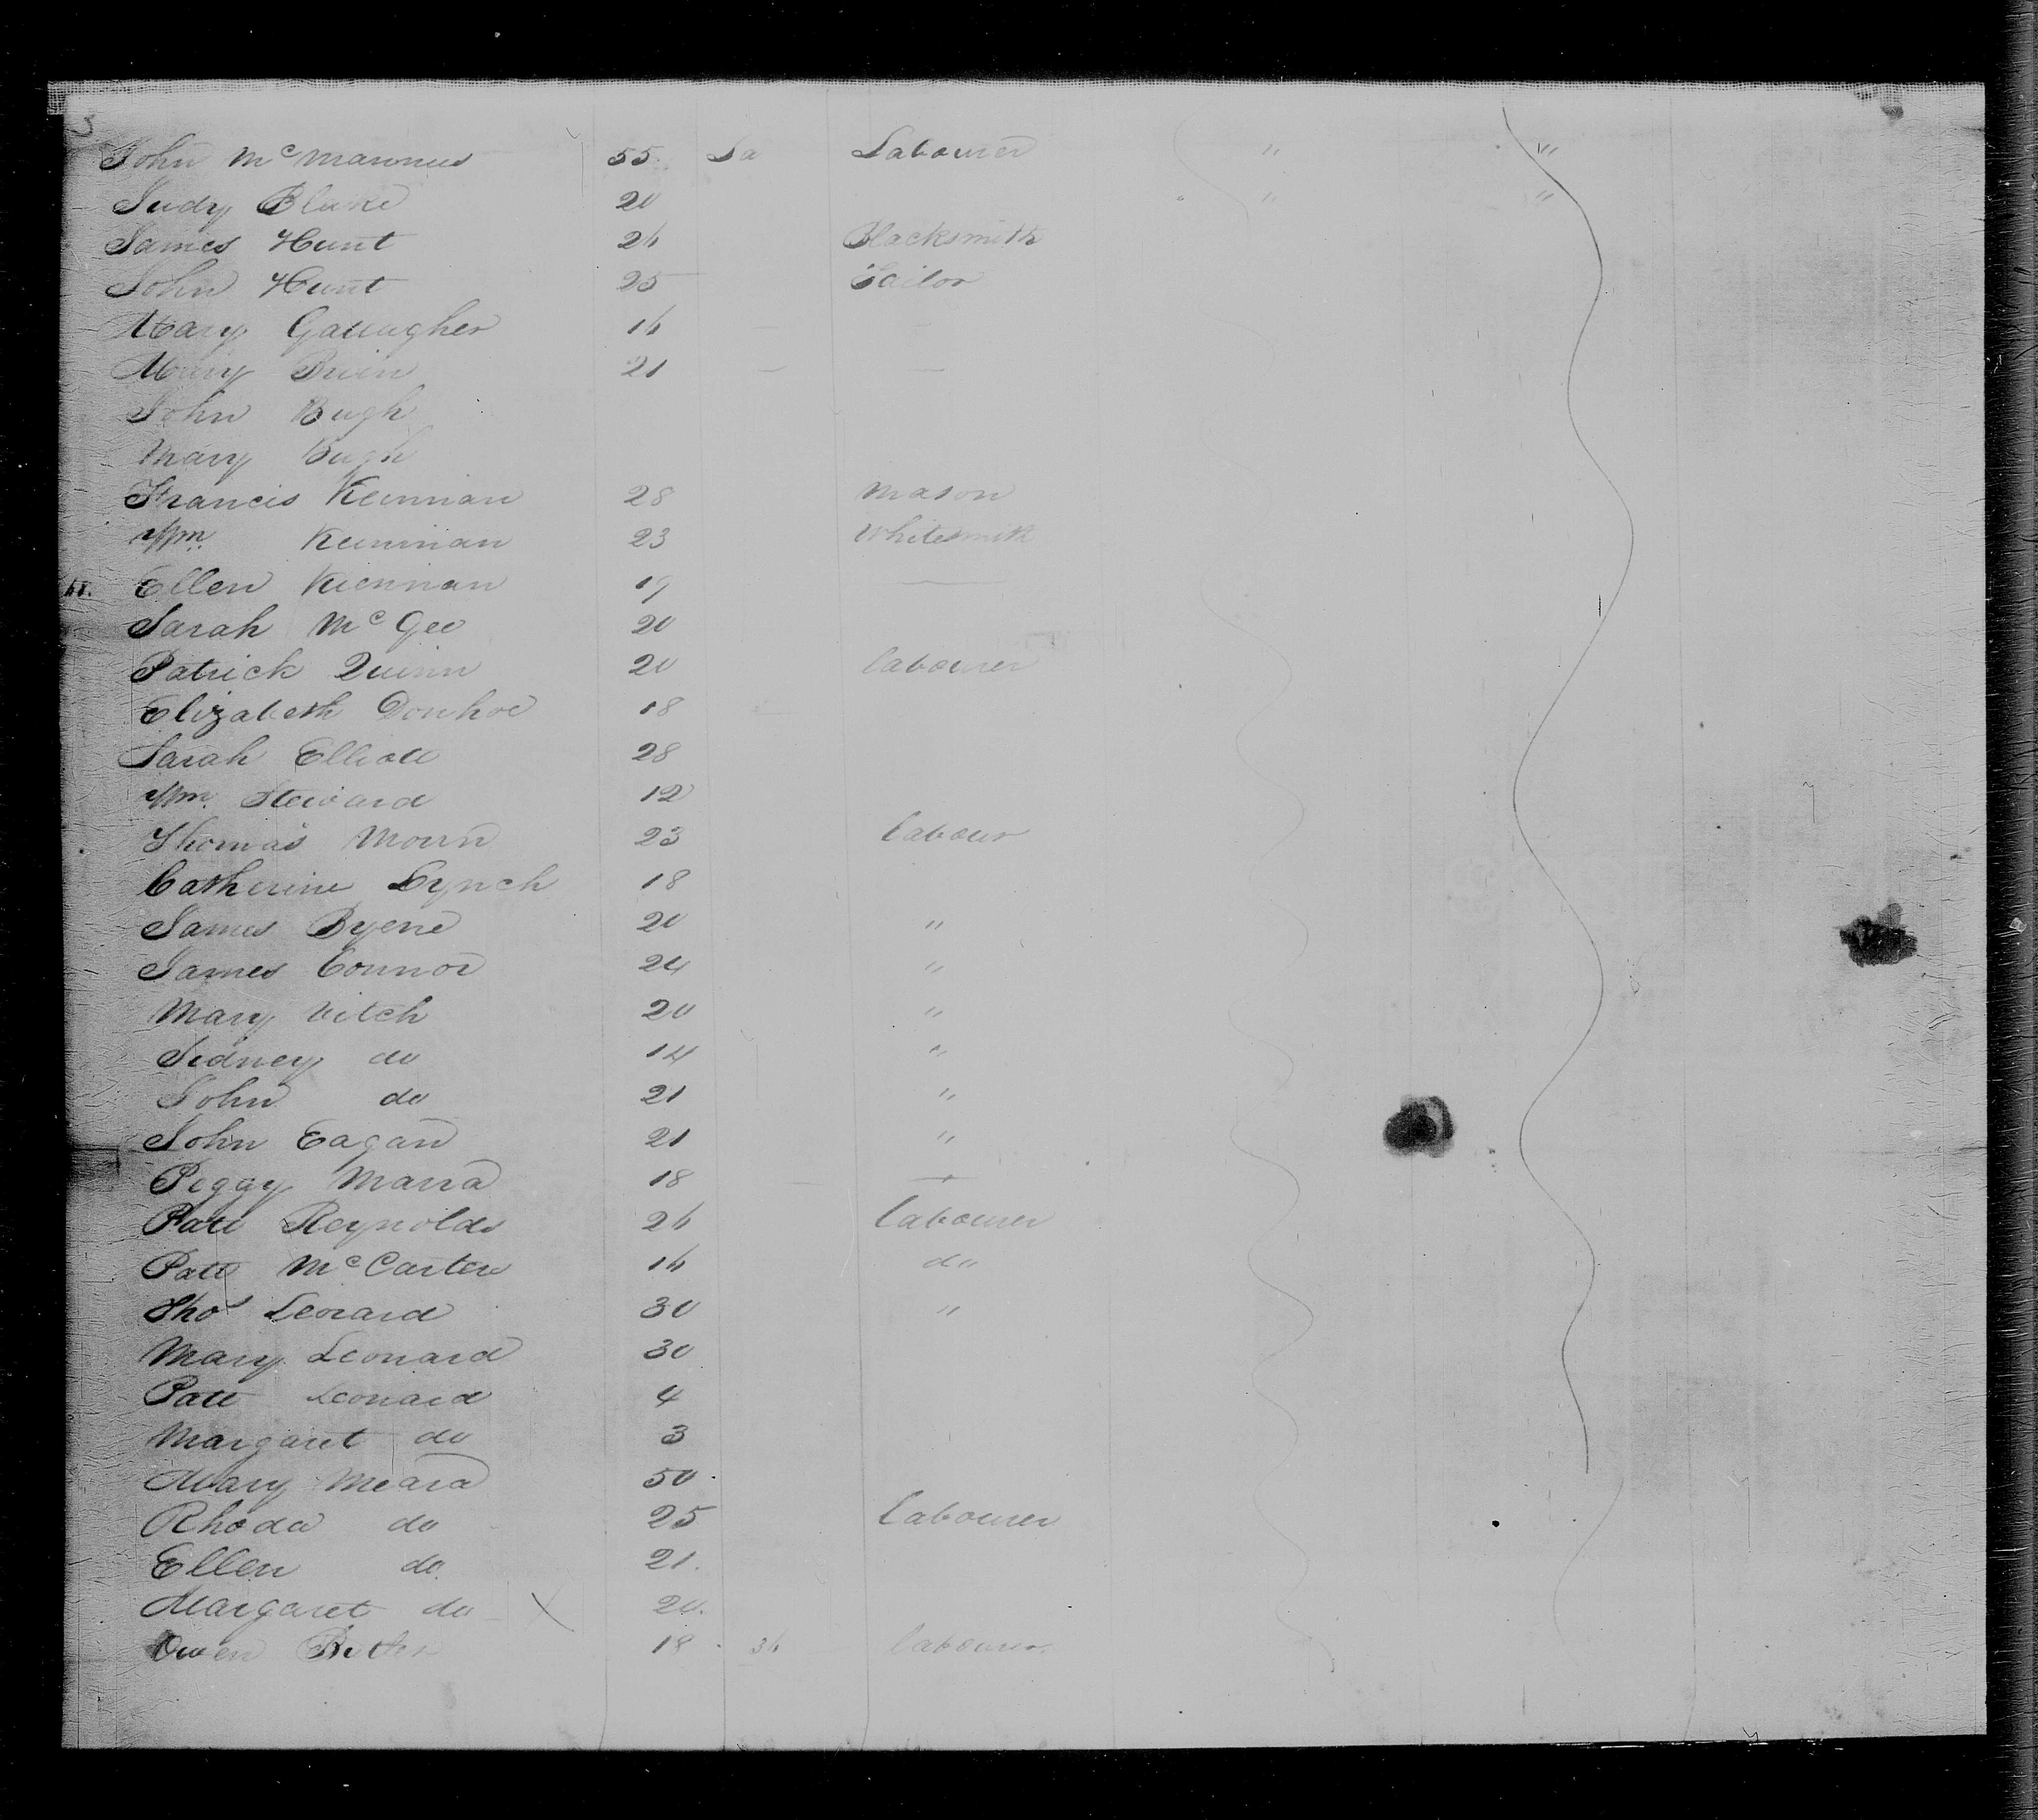 3
John McMannus 55. La Labourer " "
Judy Blake 20 " "
James Hunt 26 Blacksmith
John Hunt 25 Tailor
Mary Gallagher 16 —
Mary Brien 21 — —
John Bugh
Mary Bugh
Francis Keirnan 28 Mason
Wm. Keirnan 23 Whitesmith
Ellen Kiernan 19 —
Sarah McGee 20
Patrick Quinn 20 labourer
Elizabeth Donhoe 18 —
Sarah Elliott 28
Wm. Steward 12
Thomas Morin 23 labour
Catherine Lynch 18
James Byene 20 "
James Connor 24 "
Mary Vitch 20 "
Sidney do 14 "
John do 21 "
John Eagan 21 "
Peggy Marra 18 —
Patt Reynolds 26 labourer
Patt McCarten 16 do
Thos Leonard 30 "
Mary Leonard 30
Patt Leonard 4
Margaret do 3
Mary Meara 50
Rhoda do 25 labourer
Ellen do 21.
Margaret do 20.
Owen Butler 18 36 labourer